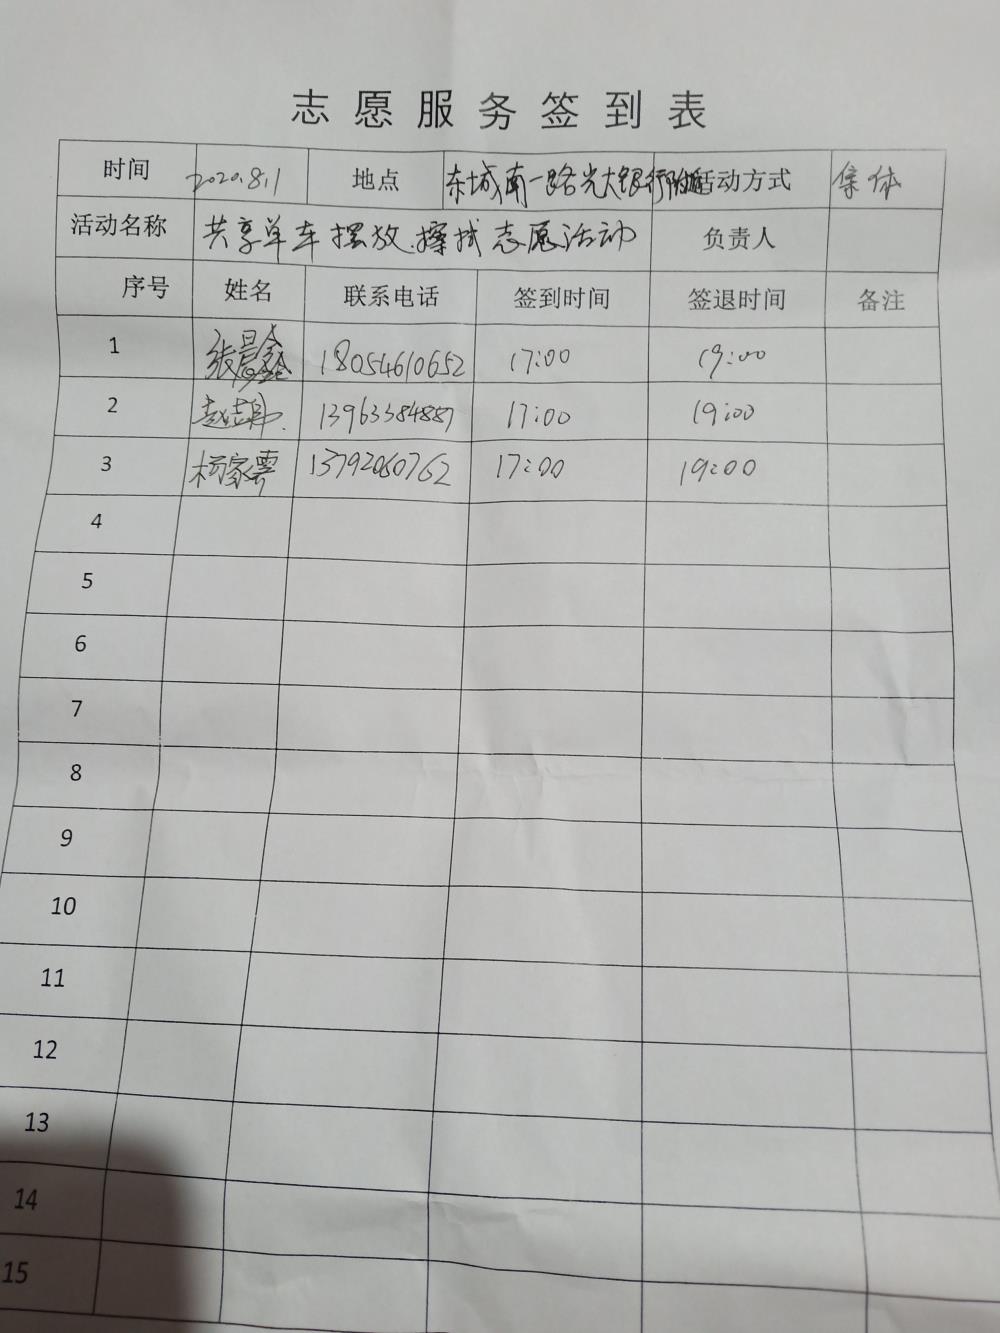 志愿服务签到表
时间 2020.8.1 地点 东城南一路光大银行附近 活动方式 集体
活动名称 共享单车摆放.擦拭志愿活动 负责人
序号 姓名 联系电话 签到时间 签退时间 备注
1 张晨鑫 18054610652 17:00 19:00
2 赵志 13963384887 17:00 19:00
3 杨家雲 13792060762 17:00 19:00
4
5
6
7
8
9
10
11
12
13
14
15